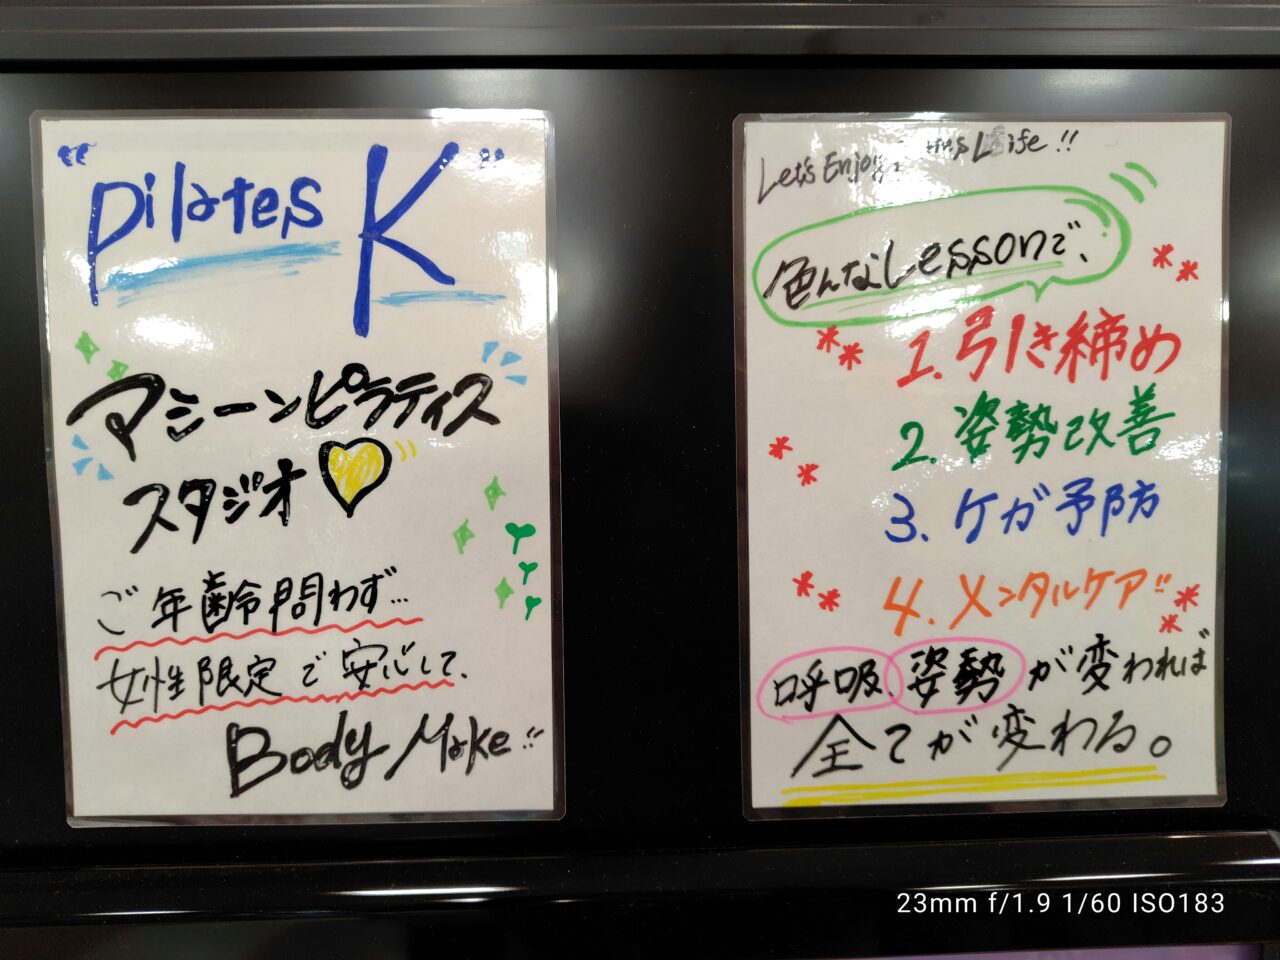 "Pilates K"
マシーンピラティス
スタジオ
ご年齢問わず…
女性限定で安心して、
Body Make!!
Let's Enjoy Life!!
色んなLessonで、
1. 引き締め
2. 姿勢改善
3. ケガ予防
4. メンタルケア!!
呼吸、姿勢が変われば
全てが変わる。
23mm f/1.9 1/60 ISO183